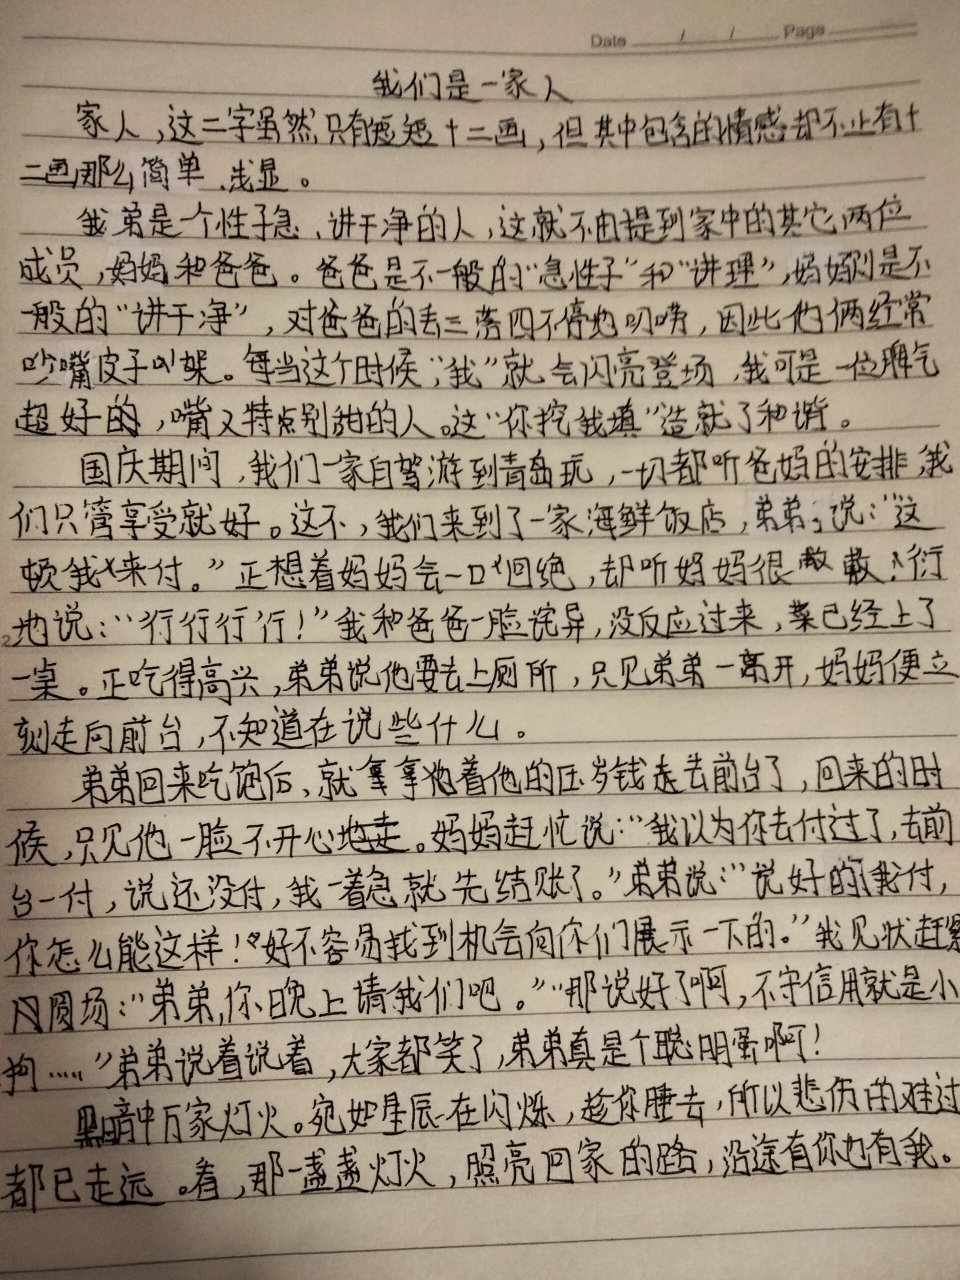 Date / / Page
我们是一家人
家人，这二字虽然只有短短十二画，但其中包含的情感却不止有十
二画那么简单、浅显。
我弟是一个性子急、讲干净的人，这就不由提到家中的其它两位
成员，妈妈和爸爸。爸爸是不一般的“急性子”和“讲理”，妈妈则是不
一般的“讲干净”，对爸爸的丢三落四不停地叨唠，因此他俩经常
吵嘴皮子叫架。每当这个时候，“我”就会闪亮登场，我可是一位脾气
超好的，嘴又特点别甜的人。这“你挖我填”造就了和谐。
国庆期间，我们一家自驾游到青岛玩，一切都听爸妈的安排，我
们只管享受就好。这不，我们来到了一家海鲜饭店，弟弟说：“这
顿我来付。”正想着妈妈会一口回绝，却听妈妈很敷衍
地说：“行行行行！”我和爸爸一脸诧异，没反应过来，菜已经上了
一桌。正吃得高兴，弟弟说他要去上厕所，只见弟弟一离开，妈妈便立
刻走向前台，不知道在说些什么。
弟弟回来吃饱后、就拿着他的压岁钱去前台了，回来的时
候，只见他一脸不开心地走。妈妈赶忙说：“我以为你去付过了，去前
台一付，说还没付，我一着急就先结账了。”弟弟说：“说好的我付，
你怎么能这样！好不容易找到机会向你们展示一下的。”我见状赶紧
圆场：“弟弟，你晚上请我们吧。”“那说好了啊，不守信用就是小
狗……”弟弟说着说着，大家都笑了，弟弟真是个聪明蛋啊！
黑暗中万家灯火。宛如星辰在闪烁，趁你睡去，所以悲伤的难过
都已走远。看，那一盏盏灯火，照亮回家的路，沿途有你也有我。